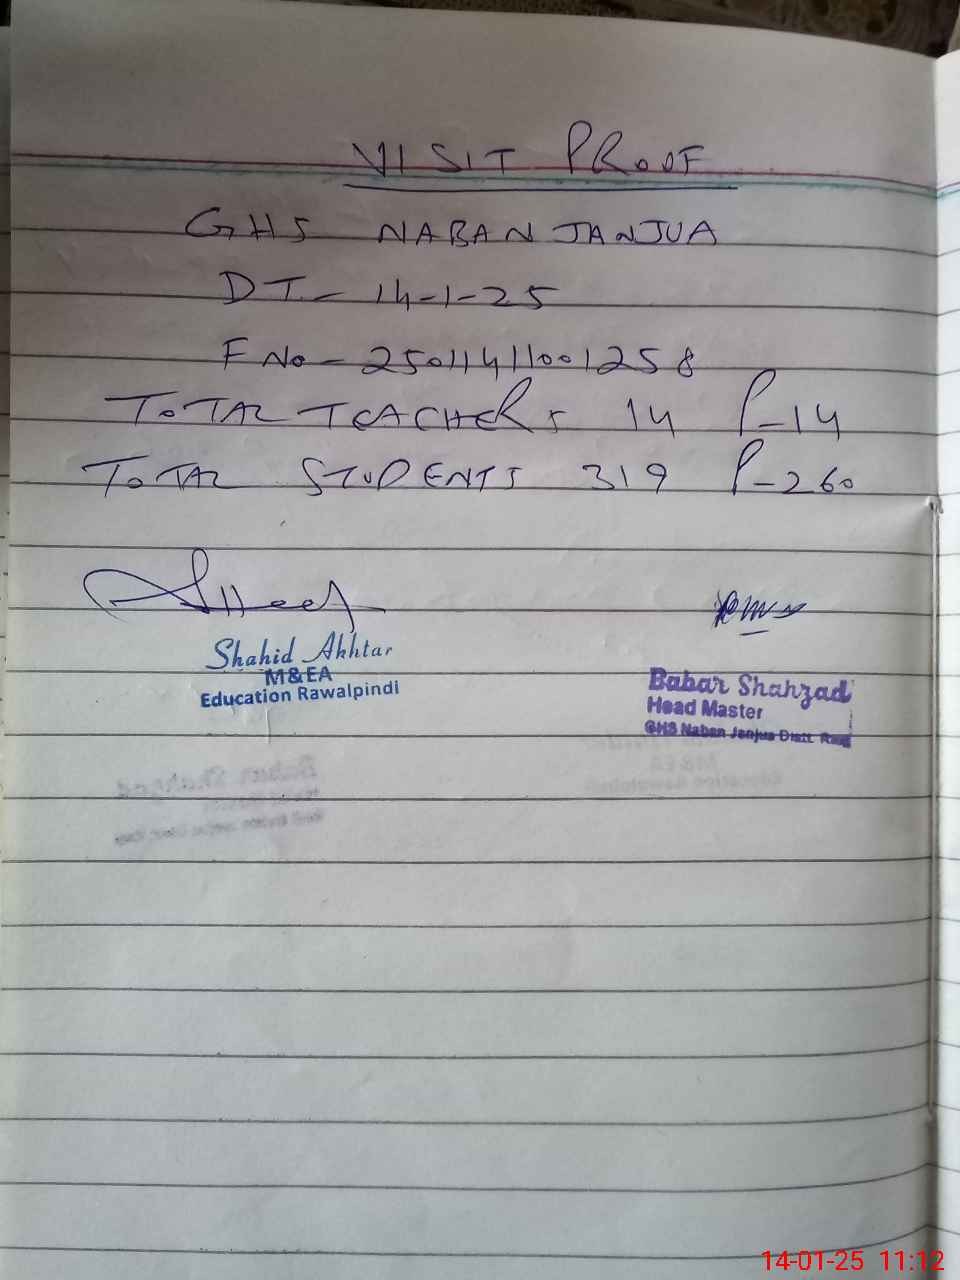 VISIT PROOF
GHS NABAN JANJUA
DT- 14-1-25
F No- 25011411001258
TOTAL TEACHERS 14 P-14
TOTAL STUDENTS 319 P-260
Shahid Akhtar
M&EA
Education Rawalpindi
Babar Shahzad
Head Master
GHS Naban Janjua Distt. Rwp
14-01-25 11:12